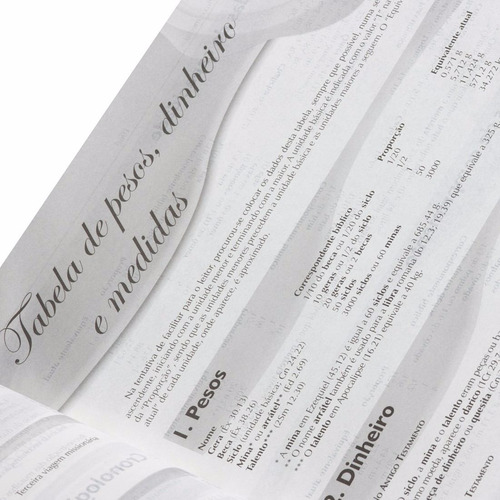 Tabela de pesos, dinheiro
e medidas
Na tentativa de facilitar para o leitor, procurou-se colocar os dados desta tabela, sempre que possível, numa se
ascendente, iniciando com a unidade menor e terminando com a maior. A unidade básica é indicada com o valor "1" na
da "proporção", sendo que as unidades menores precedem a unidade básica e as unidades maiores a seguem. O "Equiv
atual" de cada unidade, onde aparece, é aproximado.
I. Pesos
Nome Correspondente bíblico Proporção Equivalente atual
Gera (Ex 30.13) 1/10 de beca ou 1/20 do siclo 1/20 0,571 g
Beca (Ex 38.26) 10 geras ou 1/2 do siclo 1/2 5,712 g
Siclo (unidade básica; Gn 24.22) 20 geras ou 2 becas 11,424 g
Mina* ou arrátel** (Ed 2.69) 50 siclos 50 571,2 g
Talento*** (2Sm 12.30) 3000 siclos ou 60 minas 3000 34,272
* A mina em Ezequiel (45.12) é igual a 60 siclos e equivale a 685,44 g.
** O nome arrátel também é usado para a libra romana (Jo 12.3; 19.39) que equivale a 325 g.
*** O talento em Apocalipse (16.21) equivale a 40 kg.
2. Dinheiro
Antigo Testamento
siclo, a mina e o talento eram peças ou b
moeda, aparece o darico (1C 29.
de dinheiro ou quesita
Testamento
Terceira viagem missionária